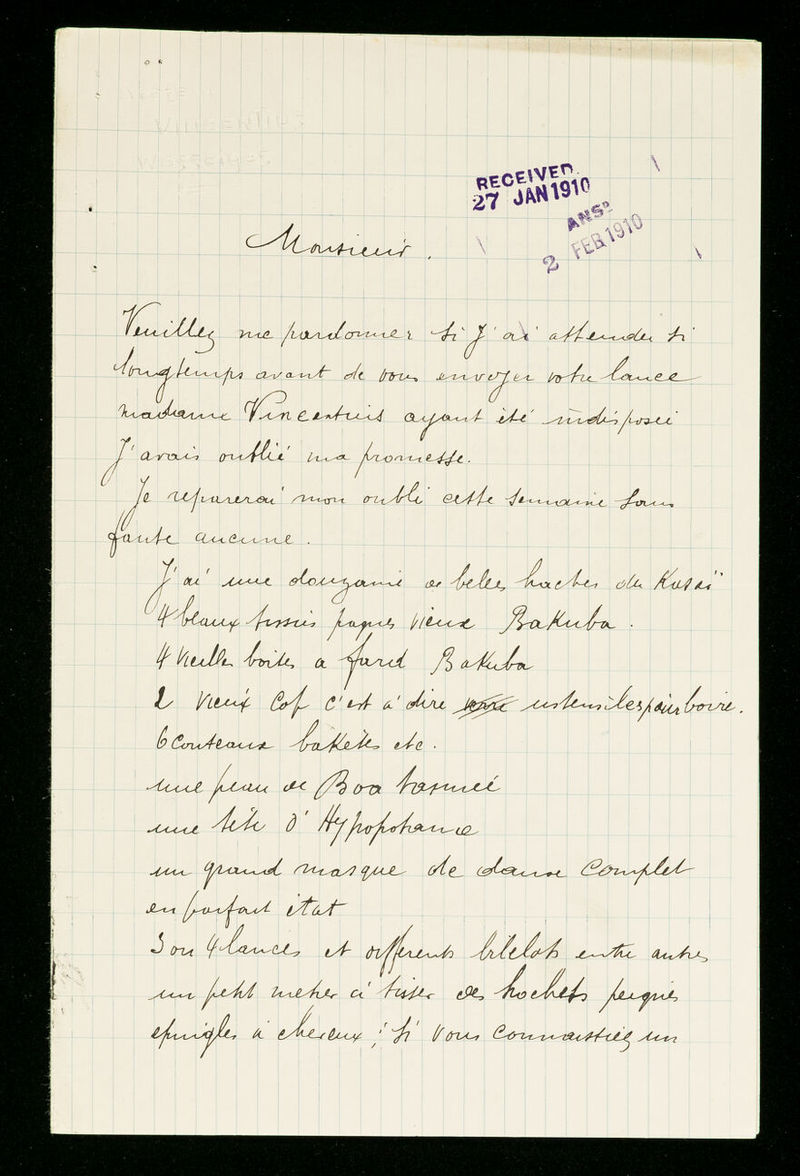 RECEIVED
27 JAN 1910
ANSD
2 FEB 1910
Monsieur.
Veuillez me pardonner si J'ai attendu si
longtemps avant de vous envoyer votre lance
madame Vincentius ayant été indisposée
J'avais oublié ma promesse.
Je reparerai mon oubli cette semaine sans
faute aucune.
J'ai une douzaine de belles haches du Kasaï
4 beaux tissus pagnes vieux Bakuba.
4 vieilles boites a fard Bakuba
2 vieux Cof c'est à dire ustensiles pour boire.
6 couteaux bakétés etc.
une peau de Boa tannée
une tête d'Hypopotame
un grand masque de danse complet
en parfait état
3 ou 4 lances et differents bibelots entre autres
un petit metier à tisser des hochets peignes
epingles à cheveux; si vous connaissiez un